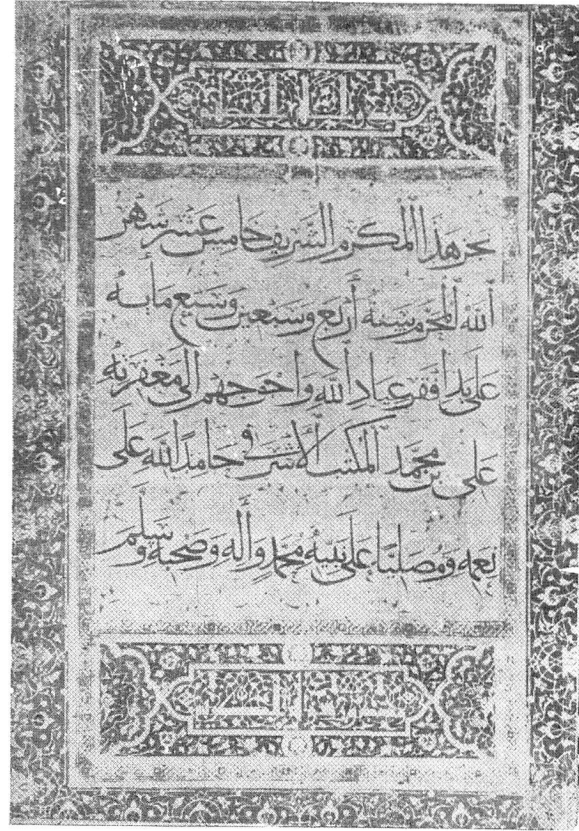 نجز هذا المكرم الشريف خامس عشر شهر
الله المحرم سنة أربع وسبعين وسبع مايه
على يد افقر عباد الله واحوجهم الى مغفرته
على بن محمد المكتب الأشرفى حامدا الله على
نعمه ومصليا على نبيه محمد وآله وصحبه وسلم